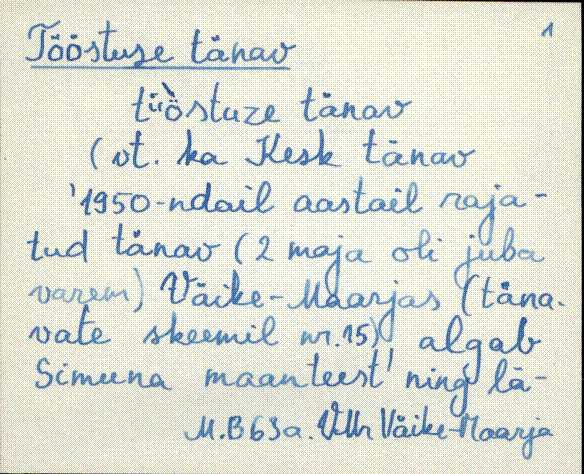 1
Tööstuse tänav
tüòstuze tänav
(vt. ka Kesk tänav
'1950-ndail aastail raja-
tud tänav (2 maja oli juba
varem) Väike-Maarjas (täna-
vate skeemil nr. 15), algab
Simuna maanteest' ning lä-
M.B63a. VMr Väike-Maarja